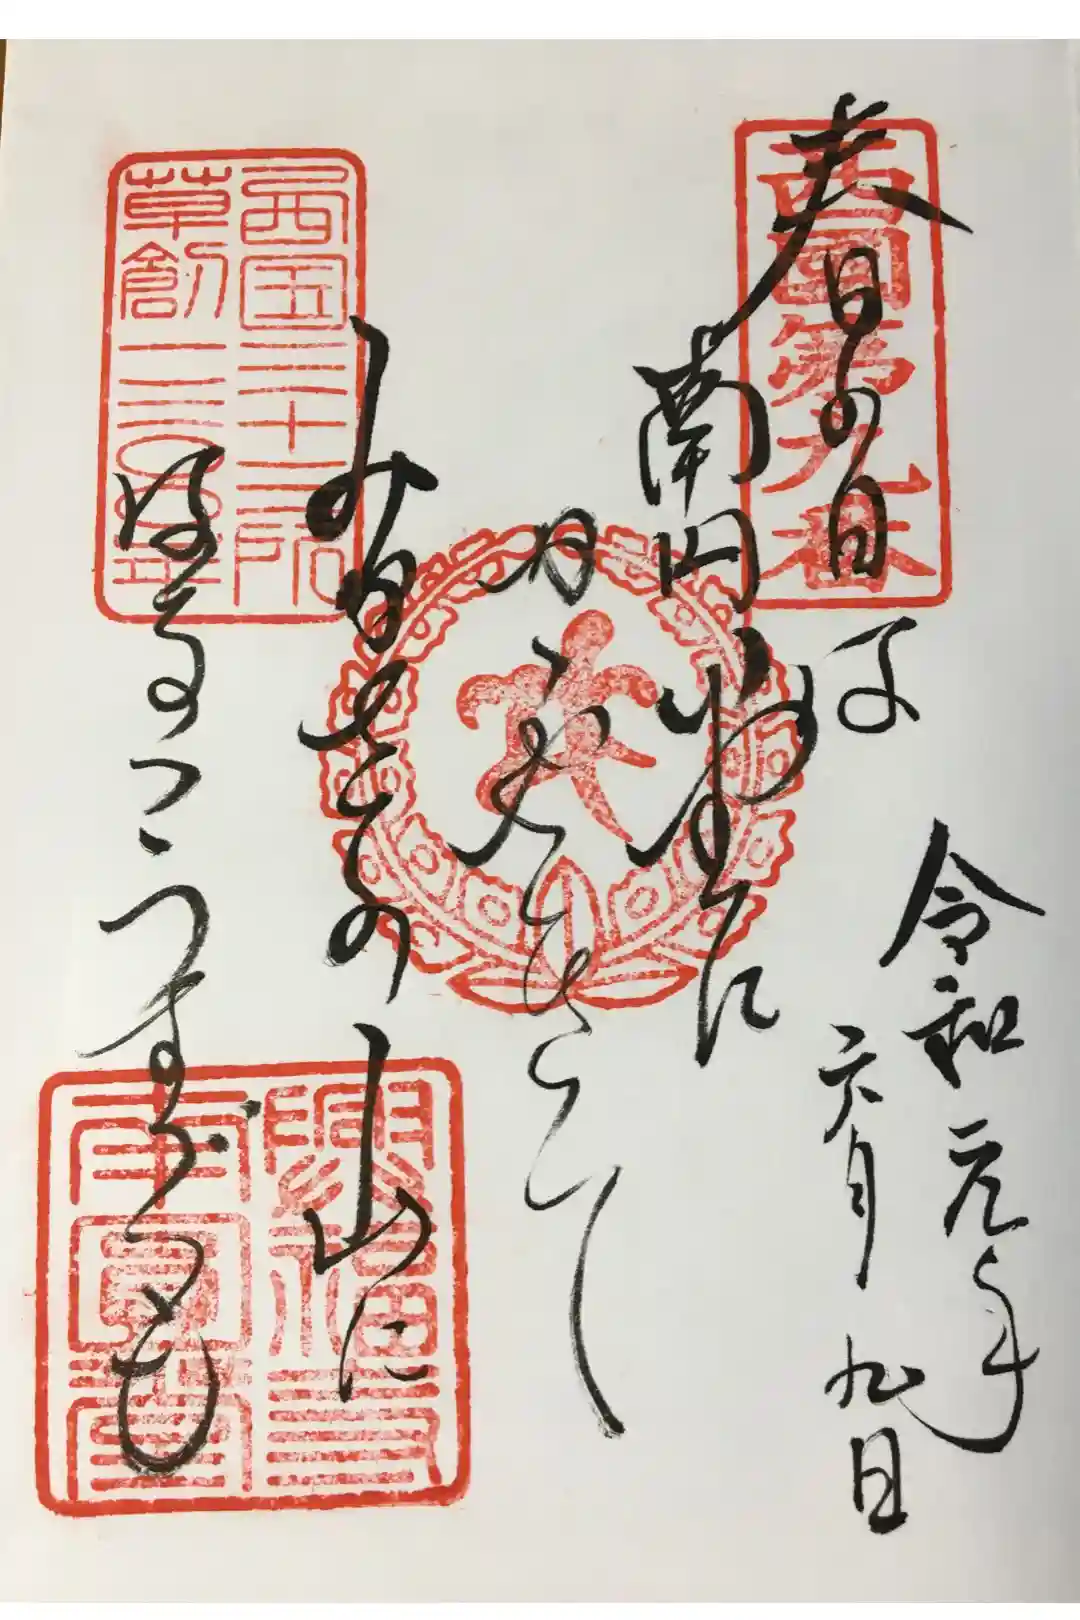 西国第九番
春の日は
南円堂に
かゞやきて
みかさの山に
はるゝうすぐも
令和元年
六月九日
西国三十三所
草創一三〇〇年
興福寺
南圓堂